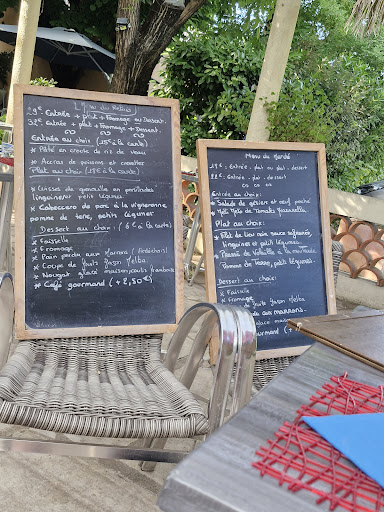 29€ Entrée + plat + Fromage ou Dessert.
32€ Entrée + plat + Fromage + Dessert.
Entrée au choix (15€ à la carte)
* Pâté en croute de ris de veau
* Accras de poissons et crevettes
Plat au choix (18€ à la carte)
* Cuisses de grenouille en persillade
linguines et petit légumes.
* de porc à la vigneronne
pomme de terre, petits légumes
Dessert au choix : (6€ à la carte)
* Faisselle
* Fromage
* Pain perdu aux Marrons (Ardéchois)
* Coupe de fruits façon Melba
* Nougat glacé maison coulis framboise
* Café gourmand (+2,50€)
Menu du Marché
Entrée - plat - dessert
Entrée - plat ou plat - dessert
Entrée au choix :
* Salade de gésier et oeuf poché
* Méli Mélo de Tomates Mozzarella
Plat au choix
* Filet de lieu noir sauce
linguines et petit légumes
* Pavé de Volaille à la moutarde
Pomme de terre, petits légumes.
Dessert au choix :
* Faisselle
* Fromage
fruits façon Melba
glacé maison
aux marrons.